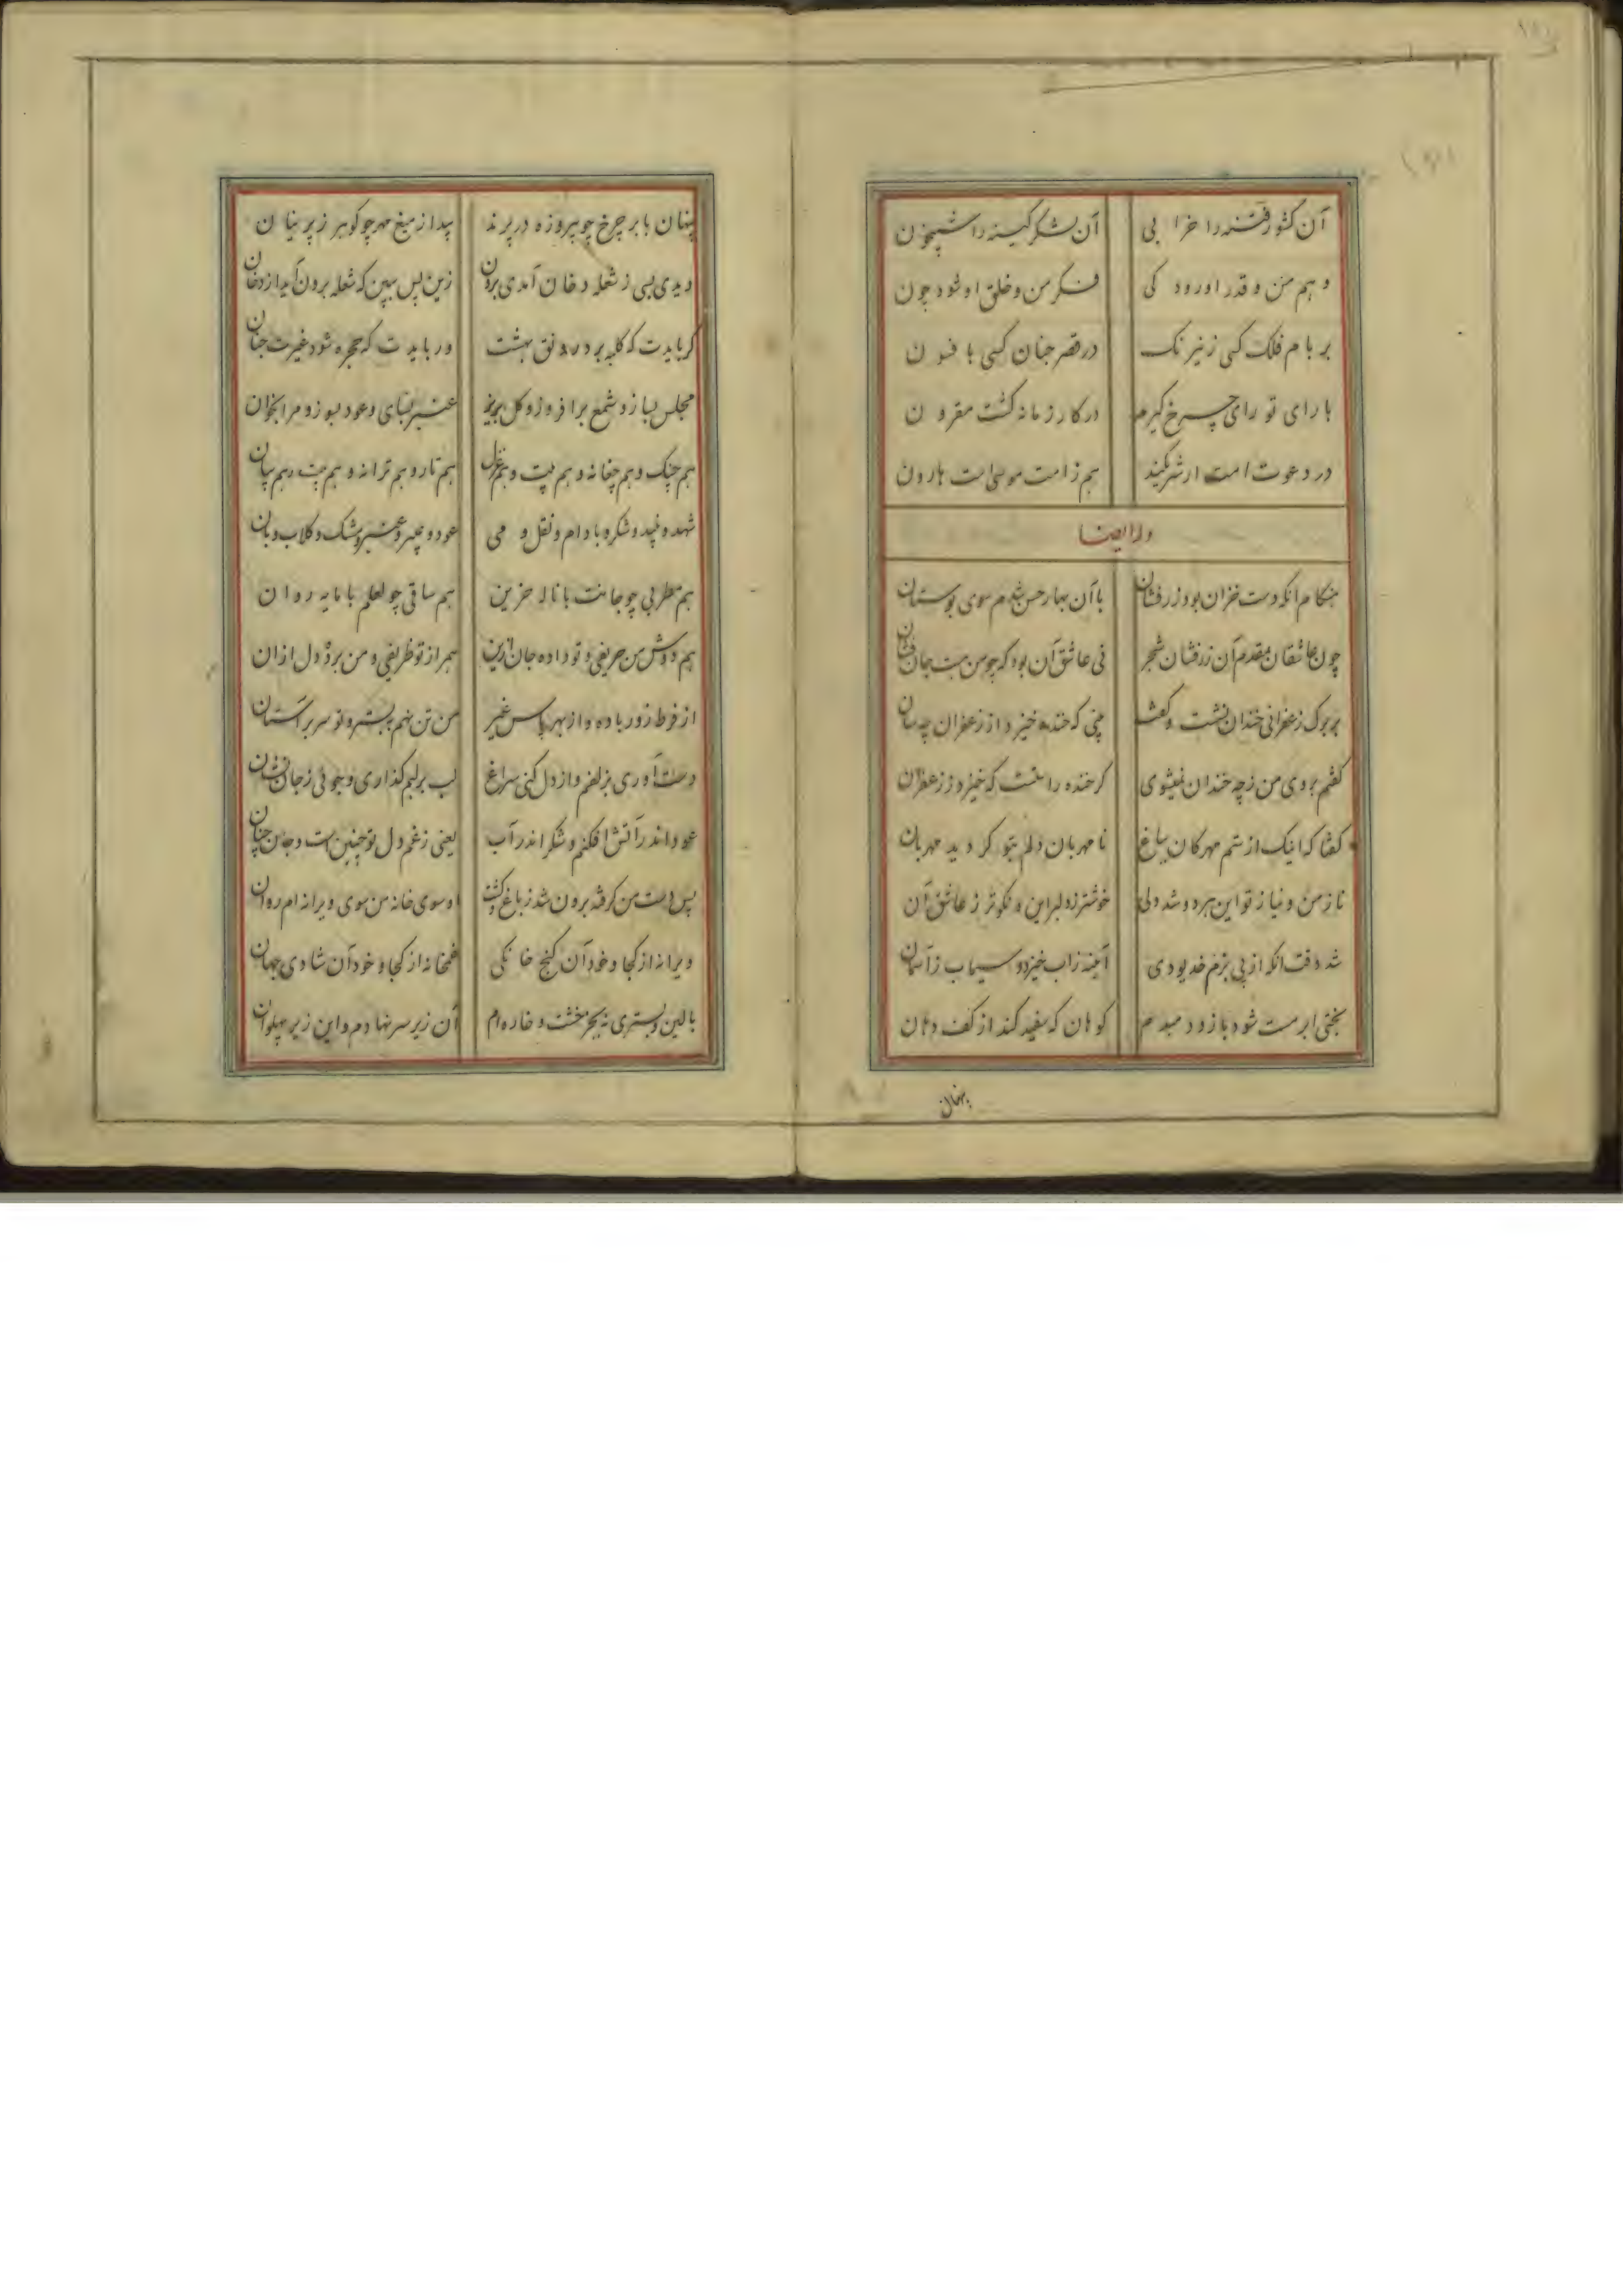 آن کشور فتنه را خرابی آن لشکر کینه را شبیخون
وهم من و قدر او رود کی فکر من و خلق او شود چون
بر بام فلک کسی ز نیرنک در قصر جنان کسی با فسون
با رای تو رای چرخ کیرم در کار زمانه کشت مقرون
در دعوت امت ار شریکند هم ز امت موسی است هارون
وله ایضا
هنکام آنکه دست خزان بود زرفشان با آن بهار حسن شدم سوی بوستان
چون عاشقان بمقدم آن زرفشان شجر نی عاشق آن بود که چو من نیست جان فشان
بر برک زعفرانی خندان نشست و کفت بینی که خنده خیزد از زعفران چه سان
کفتم بروی من ز چه خندان نمیشوی کر خنده راست است که خیزد ز زعفران
کفتا که اینک از ستم مهرکان بباغ نامهربان دلم بتو کردید مهربان
ناز من و نیاز تو این هر دو شد ولی خوشتر ز دلبر این و نکوتر ز عاشق آن
شد وقت آنکه از پی بزم خدیو دی آیینه ز آب خیزد و سیماب ز آسمان
بختی ابر مست شود باز و دمبدم کوهان که سفید کند از کف دهان
پنهان
پنهان بابر چرخ چو پیروزه در پرند پیدا ز میغ مهر چو کوهر ز پرنیان
دیدی بسی ز شعله دخان آمدی برون زین پس ببین که شعله برون آید از دخان
کر بایدت که کلبه برد رونق بهشت ور بایدت که حجره شود غیرت جنان
مجلس بساز و شمع برافروز و کل بریز عنبر بسای و عود بسوز و مرا بخوان
هم چنک و هم چغانه و هم بیت و هم غزل هم تار و هم ترانه و هم
شهد و نبید و شکر و بادام و نقل و می عود و عبیر و عنبر و مشک و کلاب و بان
هم مطربی چو جانت با ناله حزین هم ساقی چو لعلم با مایه روان
هم دوش من حریفی و تو داده جان ازین همراز تو ظریفی و من برده دل از ان
از فرط زور باده و از بهر پاس غیر من تن نهم ببستر و تو سر بر آستان
دست آوری بزلفم و از دل کنی سراغ لب بر لبم کذاری و جوئی ز جان نشان
عود اندر آتش افکنم و شکر اندر آب یعنی ز غم دل تو چنین است و جان چنان
پس دست من کرفته برون شد ز باغ و کشت او سوی خانه من سوی ویرانه ام روان
ویرانه از کجا و خود آن کنج خانکی غمخانه از کجا و خود آن شادی جهان
بالین و بستری نه بجز خشت و خاره ام آن زیر سر نهادم و این زیر پهلوان